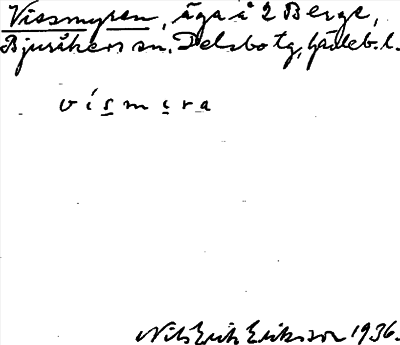 Vissmyren, äga å 2 Berge,
Bjuråkers sn, Delsbo tg, Gävleb. l.
vísmıra
Nils Erik Eriksson 1936.